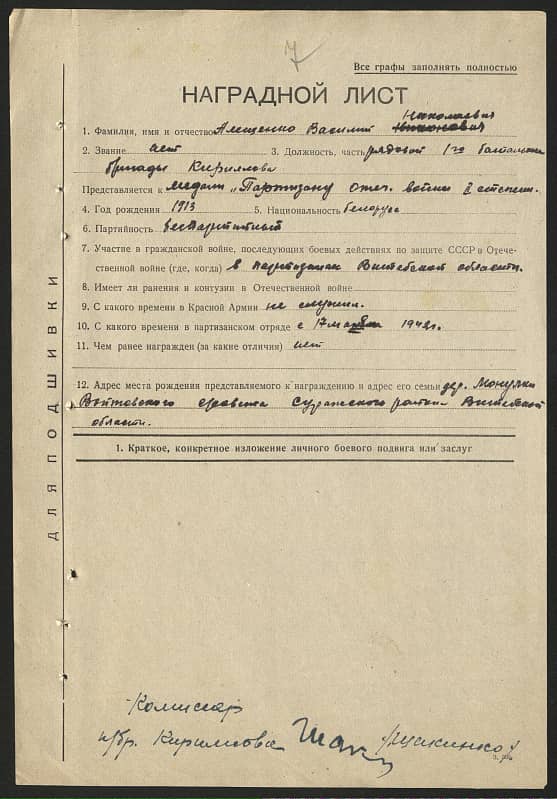 7
Все графы заполнять полностью
НАГРАДНОЙ ЛИСТ
Николаевич
1. Фамилия, имя и отчество Алещенко Василий Никонович
2. Звание нет 3. Должность, часть рядовой 1го батальона
бригады Кириллова
Представляется к медали „Партизану отеч. войны II степени.
4. Год рождения 1913 5. Национальность белорус
6. Партийность беспартийный
7. Участие в гражданской войне, последующих боевых действиях по защите СССР в Отече-
ственной войне (где, когда) в партизанах Витебской области.
8. Имеет ли ранения и контузии в Отечественной войне
9. С какого времени в Красной Армии не служил.
10. С какого времени в партизанском отряде с 17 1942г.
11. Чем ранее награжден (за какие отличия) нет
12. Адрес места рождения представляемого к награждению и адрес его семьи дер.
сельсовета Суражского района Витебской
области.
1. Краткое, конкретное изложение личного боевого подвига или заслуг
ДЛЯ ПОДШИВКИ
Комиссар
п/бр. Кириллова